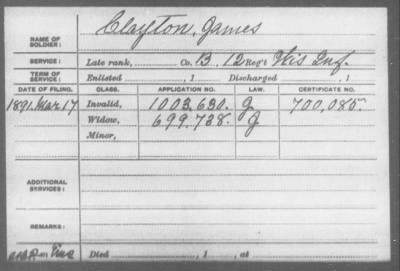 NAME OF SOLDIER: Clayton, James
SERVICE: Late rank, Co. B, 12 Reg't Wis Inf.
TERM OF SERVICE: Enlisted , 1 Discharged , 1
DATE OF FILING. CLASS. APPLICATION NO. LAW. CERTIFICATE NO.
1891. Mar 17 Invalid, 1003,630. J 700,085.
Widow, 699,738. J
Minor,
ADDITIONAL SERVICES:
REMARKS:
Died , 1 , at